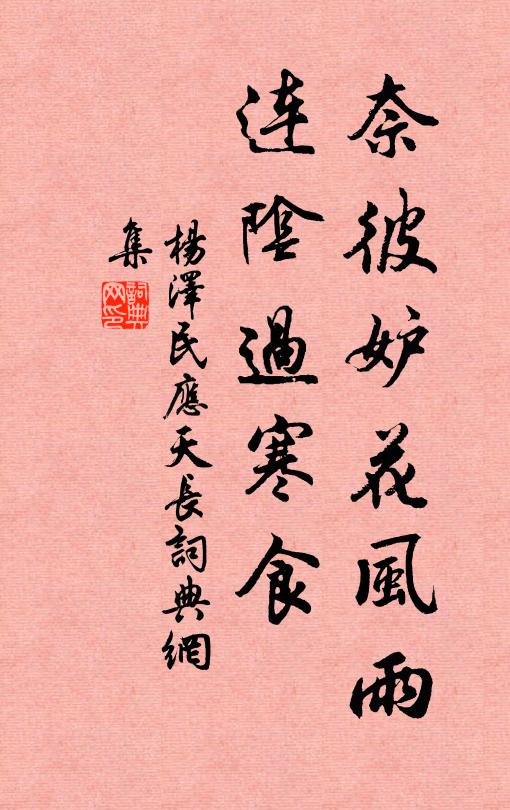 奈彼妒花風雨
連陰過寒食
楊澤民應天長詞典網
集
詞典
网印